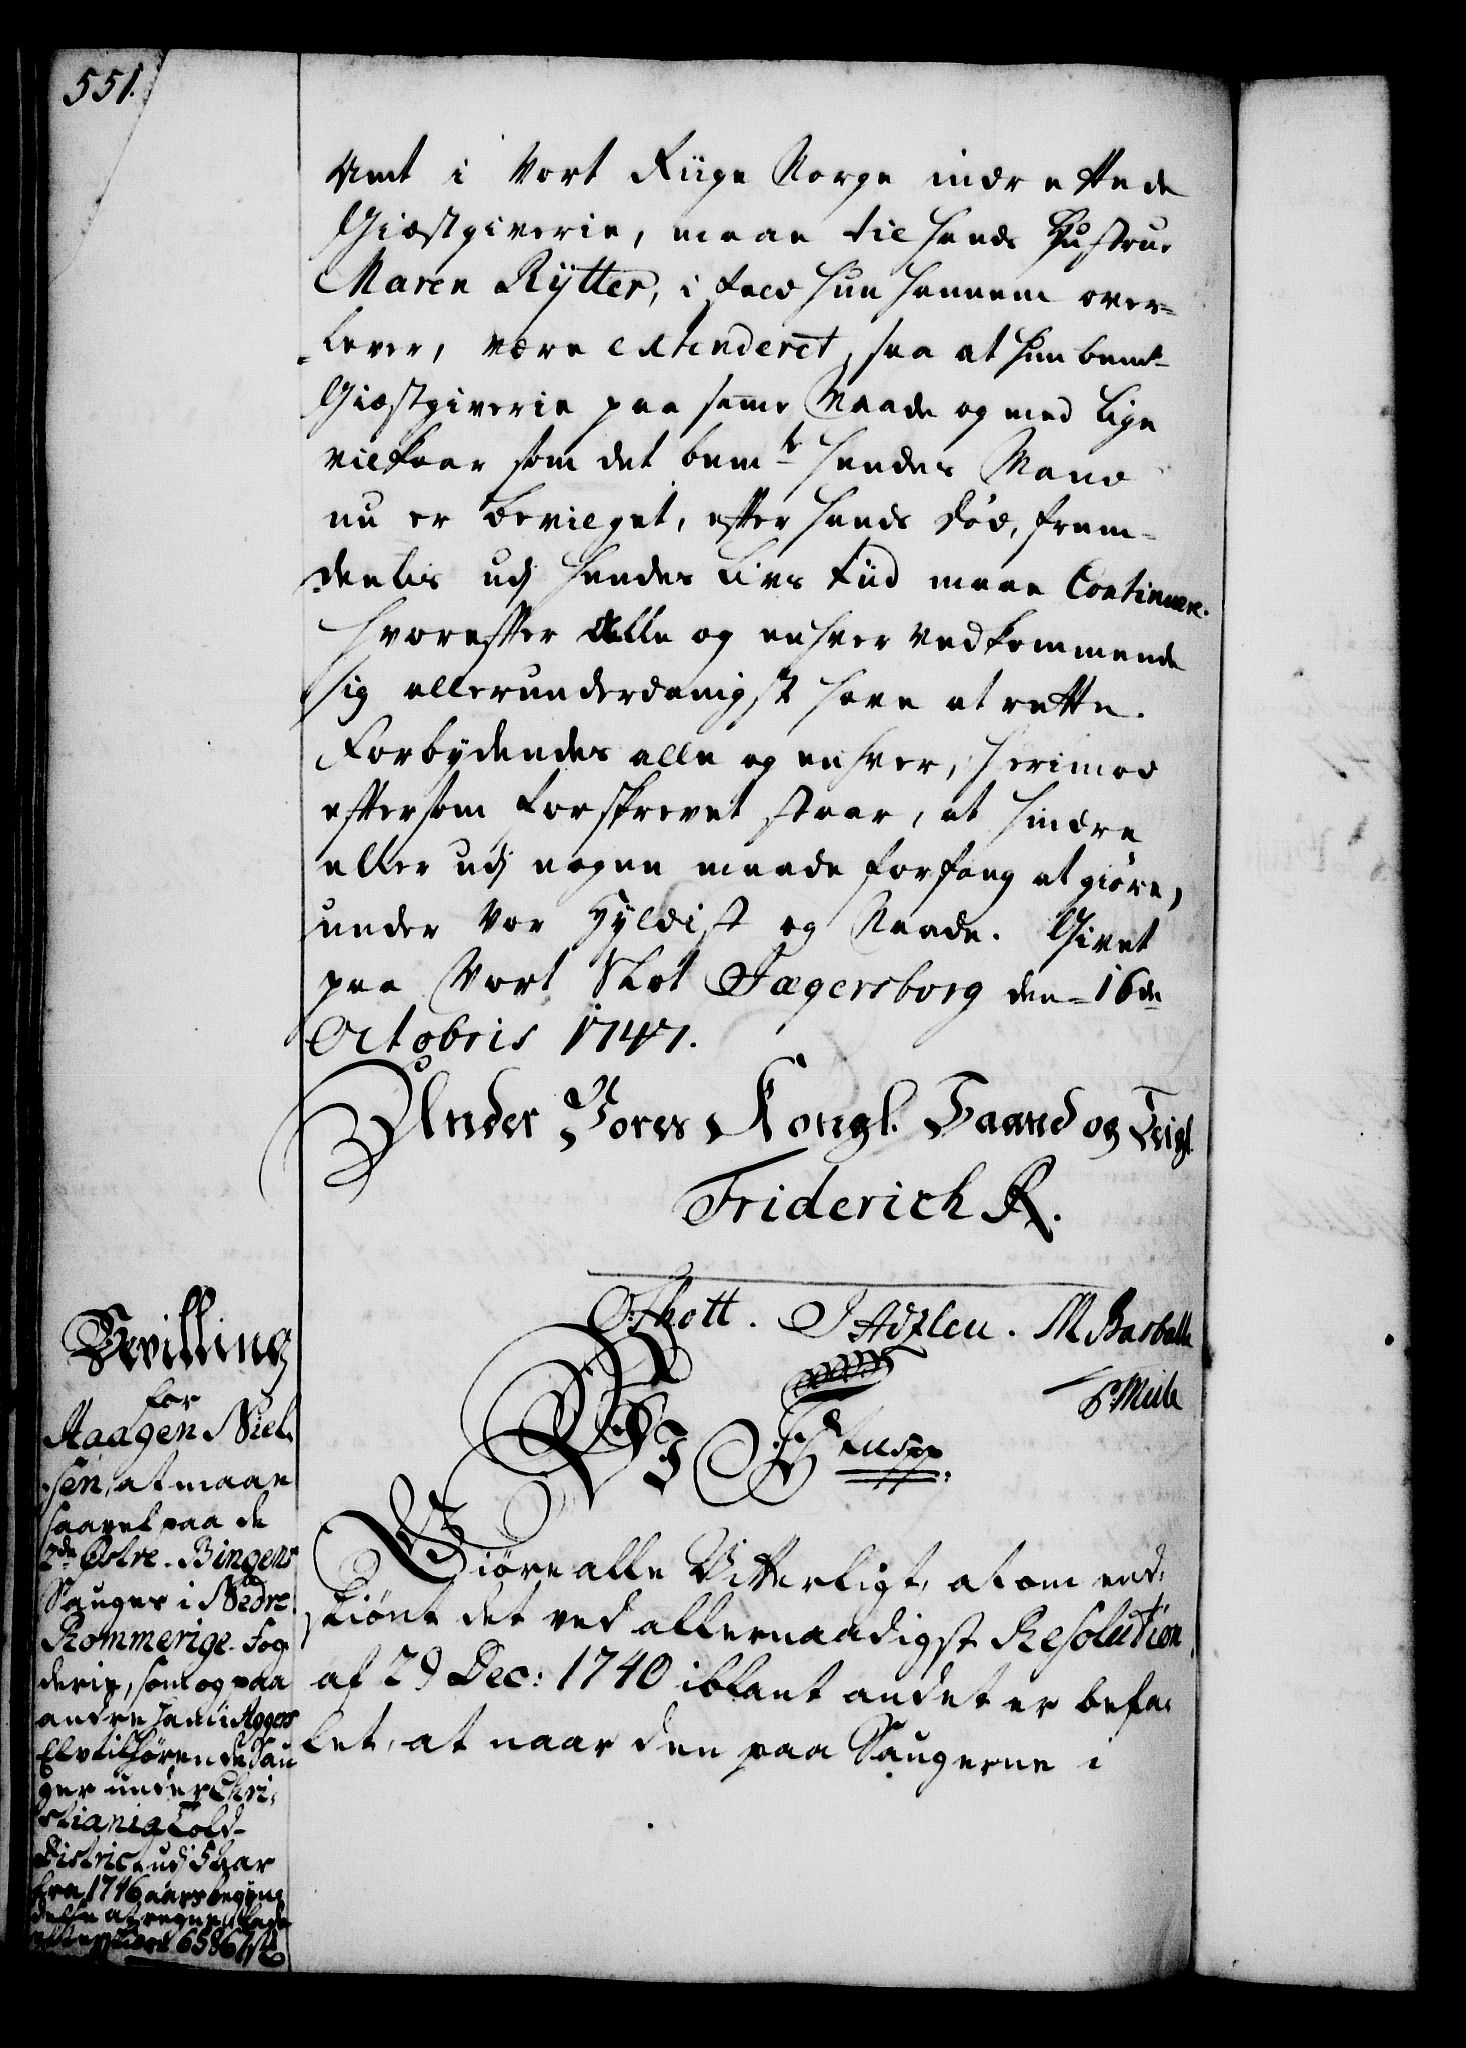 551.
Amt i Vort Riige Norge indrettede
Giæstgiverie, maae til hands Hustrue
Maren Rÿtter, i fald hun hannem over-
lever, være extenderet, saa at hun bemte
Giæstgiverie paa same Maade og med lige
vilkaar som det bemte hendes Mand
nu er bevilget, efter hands død, frem-
deelis udj hendes Livs tiid maae Continuere.
hvorefter alle og enhver vedkommende
sig allerunderdanigst have at rette.
Forbydendes alle og enhver, herimod
eftersom forskrevet staar, at hindre
eller udj nogen maade forfang at giøre,
under Vor Hyldist og Naade. Givet
paa Vort Slot Jægersborg den 16de
Octobris 1747.
Under Vores Kongl. Haand og Seigl.
Friderich R.
O Thott. M Barball
Bevilling
for
Haagen Niel-
sen, at maae
saavel paa de
2de Østre-Bingens
Sauger i Nedre
Rommerige-Fog-
derie, som og paa
andre ham i Aggers
Elv tilhørende Sau
ger under Chri-
stiania Told-
District udj Aar
fra 1746 aars begyn-
delse at regne
6586
Wi
Giøre alle Vitterligt, at om end-
skiønt det ved allernaadigst Resolution
af 29 Dec: 1740 iblant andet er befa-
let, at naar den paa Saugerne i